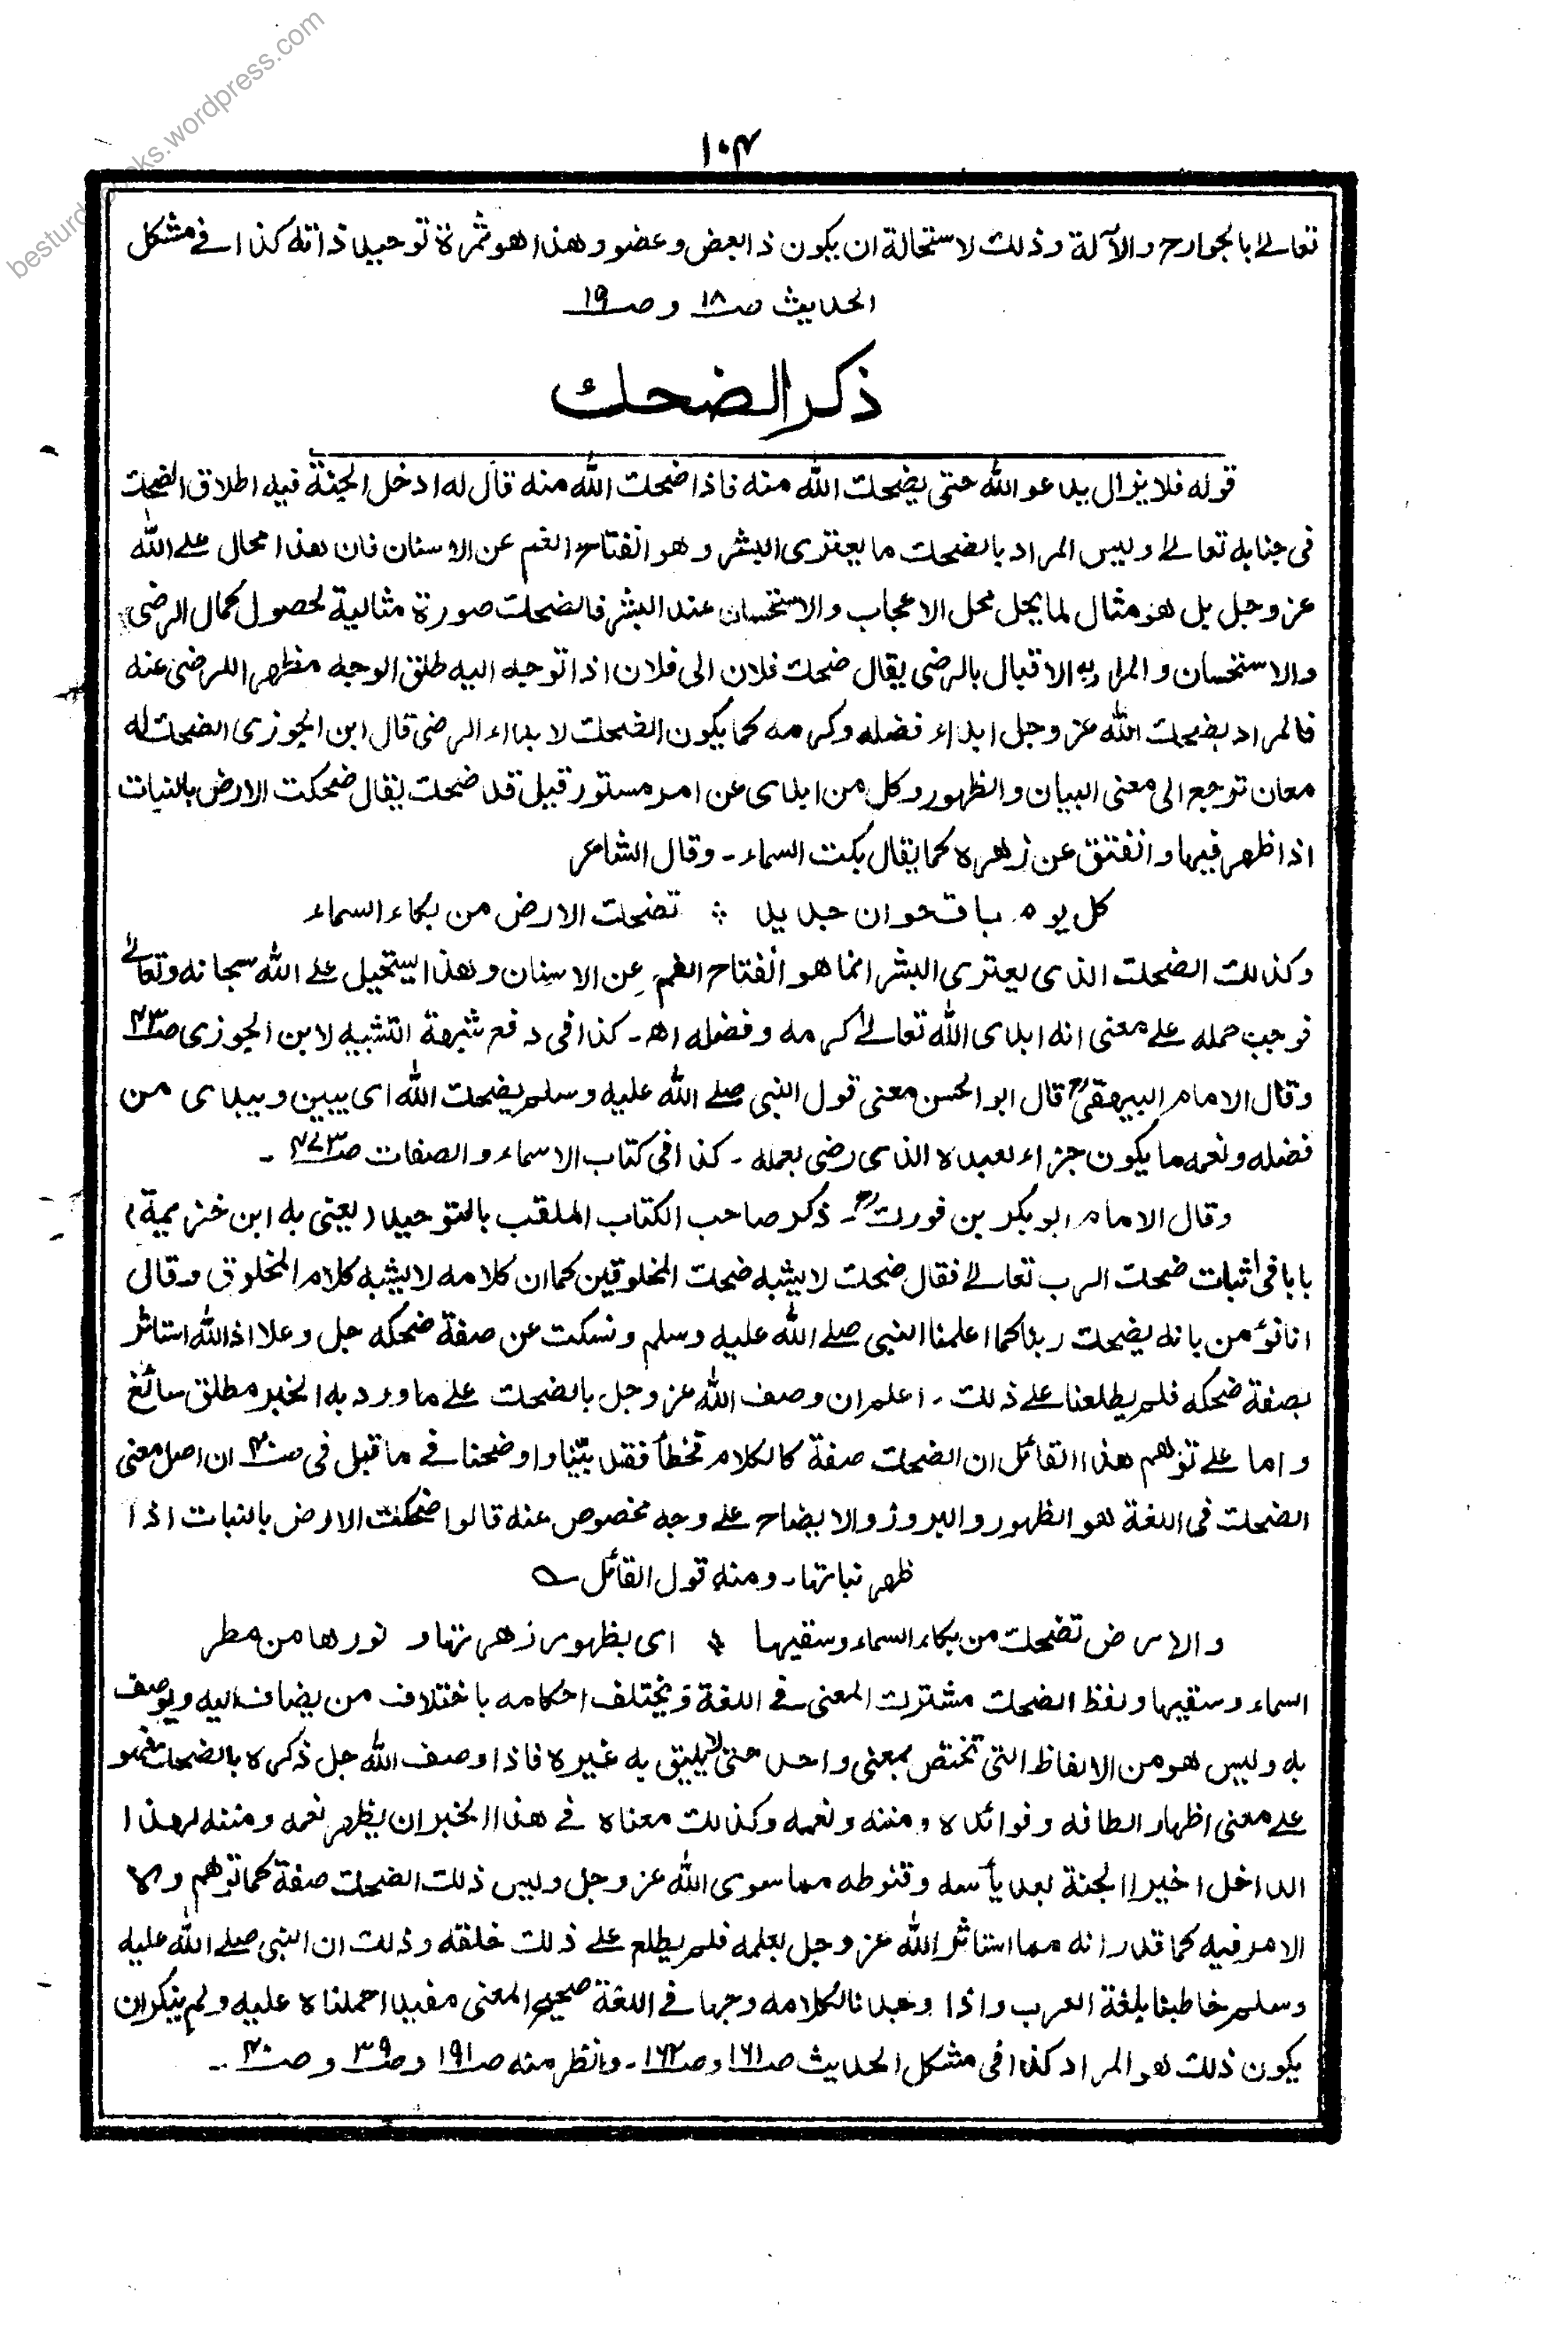 besturdubooks.wordpress.com
١٠٤
تعالے بالجوارح والآلة وذلك لاستحالة ان يكون ذا بعض وعضو وهذا هو ثمرة توحيد ذاته كذا فے مشكل
الحديث صـ١٨ و صـ١٩
ذكر الضحك
قوله فلا يزال يدعو الله حتى يضحك الله منه فاذا ضحك الله منه قال له ادخل الجنة فيه اطلاق الضحك
فى جنابه تعالے وليس المراد بالضحك ما يعترى البشر وهو انفتاح الفم عن الاسنان فان هذا محال علے الله
عز وجل بل هو مثال لما يحل محل الاعجاب والاستحسان عند البشر فالضحك صورة مثالية لحصول كمال الرضى
والاستحسان والمراد به الاقبال بالرضى يقال ضحك فلان الى فلان اذا توجه اليه طلق الوجه مظهرا للرضى عنه
فالمراد بضحك الله عز وجل ابداء فضله وكرمه كما يكون الضحك لابداء الرضى قال ابن الجوزى الضحك له
معان ترجع الى معنى البيان والظهور وكل من ابدى عن امر مستور قيل قد ضحك يقال ضحكت الارض بالنبات
اذا ظهر فيها وانفتق عن زهره كما يقال بكت السماء - وقال الشاعر
كل يوم باقحوان جديد ؞ تضحك الارض من بكاء السماء
وكذلك الضحك الذى يعترى البشر انما هو انفتاح الفم عن الاسنان وهذا يستحيل علے الله سبحانه وتعالےٰ
فوجب حمله علے معنى انه ابدى الله تعالےٰ كرمه وفضله اھ - كذا فى دفع شبهة التشبيه لابن الجوزى صـ٤٣
وقال الامام البيهقىؒ قال ابو الحسن معنى قول النبى صلے الله عليه وسلم يضحك الله اى يبين ويبدى من
فضله ونعمه ما يكون جزاء لعبده الذى رضى بعمله - كذا فى كتاب الاسماء والصفات صـ٤٧٣ -
وقال الامام ابو بكر بن فوركؒ - ذكر صاحب الكتاب الملقب بالتوحيد (يعنى به ابن خزيمة)
بابا فى اثبات ضحك الرب تعالے فقال ضحك لا يشبه ضحك المخلوقين كما ان كلامه لا يشبه كلام المخلوق وقال
انا نؤمن بانه يضحك ربنا كما اعلمنا النبى صلے الله عليه وسلم ونسكت عن صفة ضحكه جل وعلا اذ الله استاثر
بصفة ضحكه فلم يطلعنا علے ذلك - اعلم ان وصف الله عز وجل بالضحك علے ما ورد به الخبر مطلق سائغ
واما علے توهم هذا القائل ان الضحك صفة كالكلام فخطأ فقد بيّنا واوضحنا فے ما قبل فى صـ٤٠ ان اصل معنى
الضحك فى اللغة هو الظهور والبروز والايضاح علے وجه مخصوص عنه قالوا ضحكت الارض بالنبات اذا
ظهر نباتها - ومنه قول القائل ؎
والارض تضحك من بكاء السماء وسقيها ؞ اى بظهور زهرتها و نورها من مطر
السماء وسقيها ولفظ الضحك مشترك المعنى فے اللغة ويختلف احكامه باختلاف من يضاف اليه ويوصف
به وليس هو من الالفاظ التى تختص بمعنى واحد حتى لا يليق به غيره فاذا وصف الله جل ذكره بالضحك فهو
علے معنى اظهار الطافه وفوائده ومننه ونعمه وكذلك معناه فے هذا الخبر ان يظهر نعمه ومننه لهذا
الداخل اخيرا الجنة بعد يأسه وقنوطه مما سوى الله عز وجل وليس ذلك الضحك صفة كما توهم ولا
الامر فيه كما قدر انه مما استاثر الله عز وجل بعلمه فلم يطلع علے ذلك خلقه وذلك ان النبى صلے الله عليه
وسلم خاطبنا بلغة العرب واذا وجدنا لكلامه وجها فے اللغة صحيح المعنى مفيدا حملناه عليه ولم ينكر ان
يكون ذلك هو المراد كذا فى مشكل الحديث صـ١٦١ و صـ١٦٢ - وانظر منه صـ١٩١ و صـ٣٩ و صـ٤٠ -